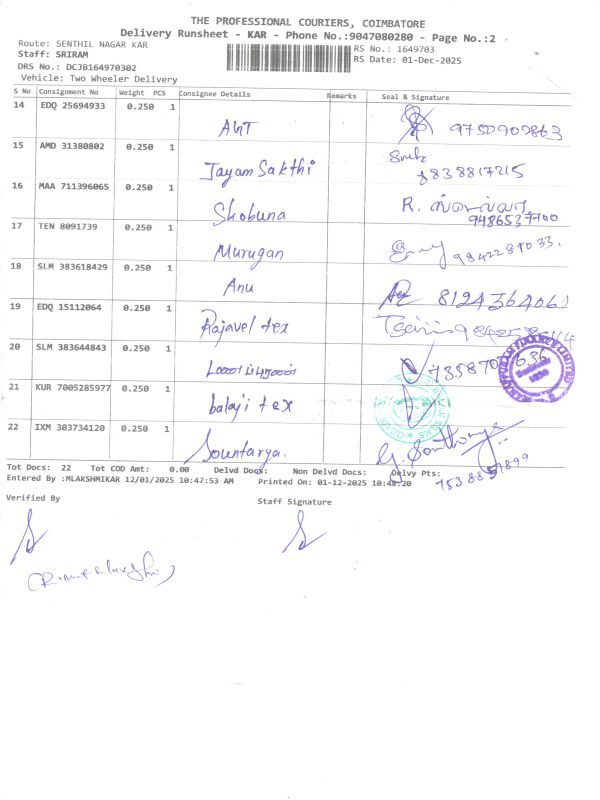 THE PROFESSIONAL COURIERS, COIMBATORE
Delivery Runsheet - KAR - Phone No.:9047080280 - Page No.:2
Route: SENTHIL NAGAR KAR
RS No.: 1649703
Staff: SRIRAM
RS Date: 01-Dec-2025
DRS No.: DCJB164970302
Vehicle: Two Wheeler Delivery
S No Consignment No Weight PCS Consignee Details Remarks Seal & Signature
14 EDQ 25694933 0.250 1
AGT
15 AMD 31380802 0.250 1
Jayam Sakthi 8838817215
16 MAA 711396065 0.250 1
Shobuna R. 9486537700
17 TEN 8091739 0.250 1
Murugan 9842284033.
18 SLM 383618429 0.250 1
Anu 8124364061
19 EDQ 15112064 0.250 1
Rajavel tex
20 SLM 383644843 0.250 1
21 KUR 7005285977 0.250 1
balaji tex
22 IXM 303734120 0.250 1
Sountarya.
Tot Docs: 22 Tot COD Amt: 0.00 Delvd Docs: Non Delvd Docs: Delvy Pts:
Entered By :MLAKSHMIKAR 12/01/2025 10:47:53 AM Printed On: 01-12-2025 10:48:20
Verified By
Staff Signature